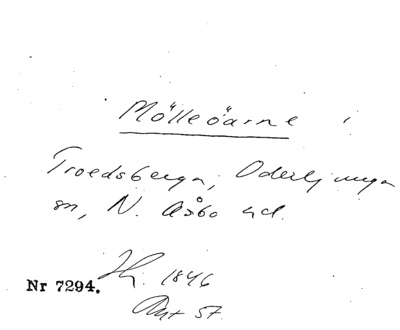 Mölleöarne i
Troedsberga, Oderljunga
sn, N. Åsbo hd.
Hy. 1846
Nr 7294.
Avt 57